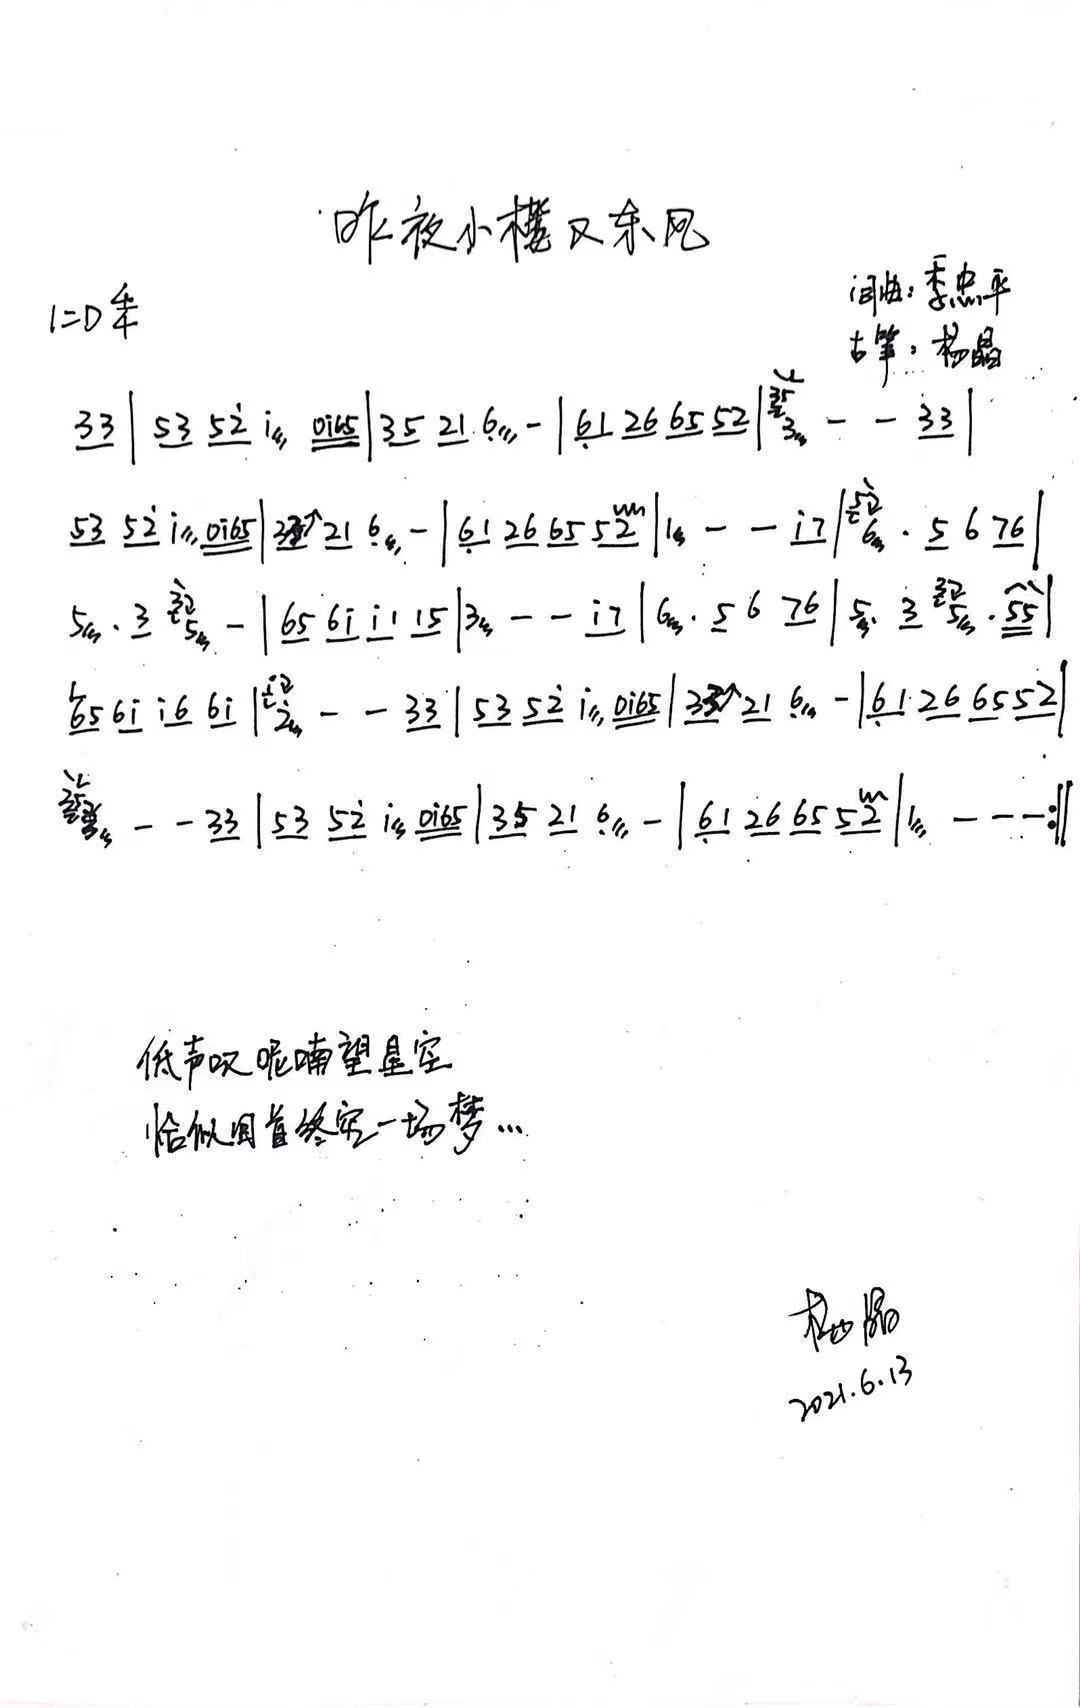 昨夜小楼又东风
1=D 4/4
词曲:季忠平
古筝:杨晶
33 | 53 52̇ i 0i65 | 35 21 6̣ - | 6̣1 26 65 52 | 35 3 - - 33 |
53 52̇ i 0i65 | 3 21 6̣ - | 6̣1 26 65 52 | 1 - - i7 | 52 6 · 5 6 76 |
5 · 3 32 5 - | 65 6i i1 15 | 3 - - i7 | 6 · 5 6 76 | 5 · 3 32 5 · 55 |
65 6i i6 6i | i2̇ 2̇ - - 33 | 53 52̇ i 0i65 | 3 21 6̣ - | 6̣1 26 65 52 |
35 3 - - 33 | 53 52̇ i 0i65 | 35 21 6̣ - | 6̣1 26 65 52 | 1 - - - :||
低声叹呢喃望星空
恰似回首终究一场梦...
杨晶
2021.6.13